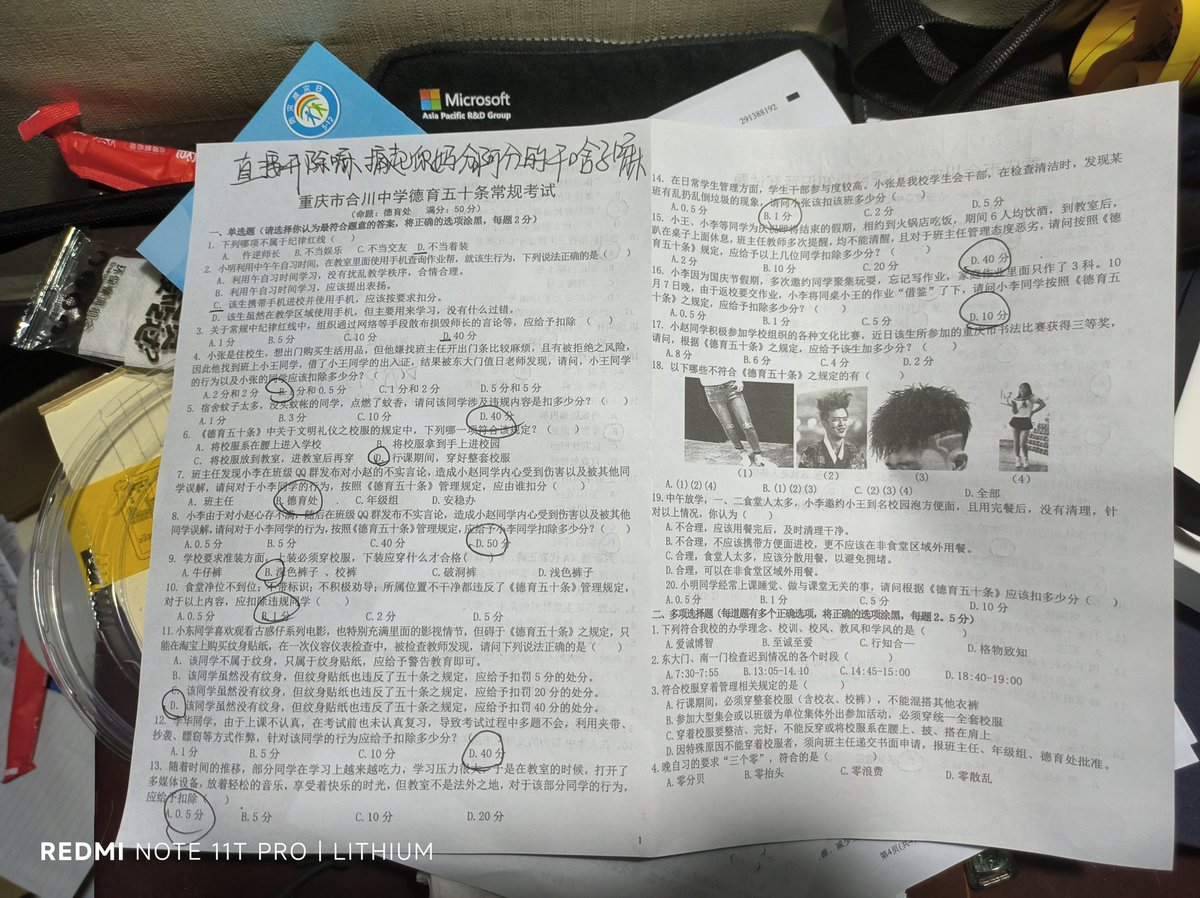 Microsoft
Asia Pacific R&D Group
5·12
291388192
直接开除嘛、搞起你妈分阿分的干啥子嘛
重庆市合川中学德育五十条常规考试
(命题：德育处 满分：50分)
一、单选题（请选择你认为最符合题意的答案，将正确的选项涂黑，每题2分）
1. 下列哪项不属于纪律红线（ ）
A. 忤逆师长 B. 不当娱乐 C. 不当交友 D. 不当着装
2. 小明利用中午午自习时间，在教室里面使用手机查询作业帮，就该生行为，下列说法正确的是（ ）
A. 利用午自习时间学习，没有扰乱教学秩序，合情合理。
B. 利用午自习时间学习，应该提出表扬。
C. 该生携带手机进校并使用手机，应该按要求扣分。
D. 该生虽然在教学区域使用手机，但主要用来学习，没有什么过错。
3. 关于常规中纪律红线中，组织通过网络等手段散布损毁师长的言论等，应给予扣除（ ）
A. 1分 B. 5分 C. 10分 D. 40分
4. 小张是住校生，想出门购买生活用品，但他嫌找班主任开出门条比较麻烦，且有被拒绝之风险，
因此他找到班上小王同学，借了小王同学的出入证，结果被东大门值日老师发现，请问，小王同学
的行为以及小张的同学应该扣除多少分？（ ）
A. 2分和2分 B. 5分和0.5分 C. 1分和2分 D. 5分和5分
5. 宿舍蚊子太多，没买蚊帐的同学，点燃了蚊香，请问该同学涉及违规内容是扣多少分？（ ）
A. 1分 B. 3分 C. 10分 D. 40分
6. 《德育五十条》中关于文明礼仪之校服的规定中，下列哪一项符合该规定？（ ）
A. 将校服系在腰上进入学校 B. 将校服拿到手上进校园
C. 将校服放到教室，进教室后再穿 D. 行课期间，穿好整套校服
7. 班主任发现小李在班级QQ群发布对小赵的不实言论，造成小赵同学内心受到伤害以及被其他同
学误解，请问对于小李同学的行为，按照《德育五十条》管理规定，应由谁扣分（ ）
A. 班主任 B. 德育处 C. 年级组 D. 安稳办
8. 小李由于对小赵心存不满，随后在班级QQ群发布不实言论，造成小赵同学内心受到伤害以及被其他
同学误解，请问对于小李同学的行为，按照《德育五十条》管理规定，应给予小李同学扣除多少分？（ ）
A. 0.5分 B. 5分 C. 40分 D. 50分
9. 学校要求准装方面，上装必须穿校服，下装应穿什么才合格（ ）
A. 牛仔裤 B. 深色裤子、校裤 C. 破洞裤 D. 浅色裤子
10. 食堂净位不到位；不带标识；不积极劝导；所属位置不干净都违反了《德育五十条》管理规定，
对于以上内容，应扣除违规同学（ ）
A. 0.5分 B. 1分 C. 2分 D. 5分
11. 小东同学喜欢观看古惑仔系列电影，也特别充满里面的影视情节，但碍于《德育五十条》之规定，只
能在淘宝上购买纹身贴纸，在一次仪容仪表检查中，被检查教师发现，请问下列说法正确的是（ ）
A. 该同学不属于纹身，只属于纹身贴纸，应给予警告教育即可。
B. 该同学虽然没有纹身，但纹身贴纸也违反了五十条之规定，应给予扣罚5分的处分。
该同学虽然没有纹身，但纹身贴纸也违反了五十条之规定，应给予扣罚20分的处分。
D. 该同学虽然没有纹身，但纹身贴纸也违反了五十条之规定，应给予扣罚40分的处分。
12. 李华同学，由于上课不认真，在考试前也未认真复习，导致考试过程中多题不会，利用夹带、
抄袭、瞟窃等方式作弊，针对该同学的行为应给予扣除多少分？（ ）
A. 1分 B. 5分 C. 10分 D. 40分
13. 随着时间的推移，部分同学在学习上越来越吃力，学习压力很大，于是在教室的时候，打开了
多媒体设备，放着轻松的音乐，享受着快乐的时光，但教室不是法外之地，对于该部分同学的行为，
应给予扣除（ ）
A. 0.5分 B. 5分 C. 10分 D. 20分
1
14. 在日常学生管理方面，学生干部参与度较高。小张是我校学生会干部，在检查清洁时，发现某
班有乱扔乱倒垃圾的现象，请问小张该扣该班多少分（ ）
A. 0.5分 B. 1分 C. 2分 D. 5分
15. 小王、小李等同学为庆祝即将结束的假期，相约到火锅店吃饭，期间6人均饮酒，到教室后，
趴在桌子上面休息，班主任教师多次提醒，均不能清醒，且对于班主任管理态度恶劣，请问按照《德
育五十条》规定，应给予以上几位同学扣除多少分？（ ）
A. 2分 B. 10分 C. 20分 D. 40分
16. 小李因为国庆节假期，多次邀约同学聚集玩耍，忘记写作业，家庭作业里面只作了3科。10
月7日晚，由于返校要交作业，小李将同桌小王的作业“借鉴”了下，请问小李同学按照《德育五
十条》之规定，应给予扣除多少分？（ ）
A. 0.5分 B. 1分 C. 5分 D. 10分
17. 小赵同学积极参加学校组织的各种文化比赛，近日该生所参加的重庆市书法比赛获得三等奖，
请问，根据《德育五十条》之规定，应给予该生加多少分？（ ）
A. 8分 B. 6分 C. 4分 D. 2分
18. 以下哪些不符合《德育五十条》之规定的有（ ）
(1) (2) (3) (4)
A. (1)(2)(4) B. (1)(2)(3) C. (2)(3)(4) D. 全部
19. 中午放学，一、二食堂人太多，小李邀约小王到名校园泡方便面，且用完餐后，没有清理，针
对以上情况，你认为（ ）
A. 不合理，应该用餐完后，及时清理干净。
B. 不合理，不应该携带方便面进校，更不应该在非食堂区域外用餐。
C. 合理，食堂人太多，应该分散用餐，以避免拥堵。
D. 合理，可以在非食堂区域外用餐。
20. 小明同学经常上课睡觉、做与课堂无关的事，请问根据《德育五十条》应该扣多少分（ ）
A. 0.5分 B. 1分 C. 5分 D. 10分
二、多项选择题（每道题有多个正确选项，将正确的选项涂黑，每题2.5分）
1. 下列符合我校的办学理念、校训、校风、教风和学风的是（ ）
A. 爱诚博智 B. 至诚至爱 C. 行知合一 D. 格物致知
2. 东大门、南一门检查迟到情况的各个时段（ ）
A. 7:30-7:55 B. 13:05-14.10 C. 14:45-15:00 D. 18:40-19:00
3. 符合校服穿着管理相关规定的是（ ）
A. 行课期间，必须穿整套校服（含校衣、校裤），不能混搭其他衣裤
B. 参加大型集会或以班级为单位集体外出参加活动，必须穿统一全套校服
C. 穿着校服要整洁、完好，不能反穿或将校服系在腰上、披、搭在肩上
D. 因特殊原因不能穿着校服者，须向班主任递交书面申请，报班主任、年级组、德育处批准。
4. 晚自习的要求“三个零”，符合的是（ ）
A. 零分贝 B. 零抬头 C. 零浪费 D. 零散乱
REDMI NOTE 11T PRO | LITHIUM